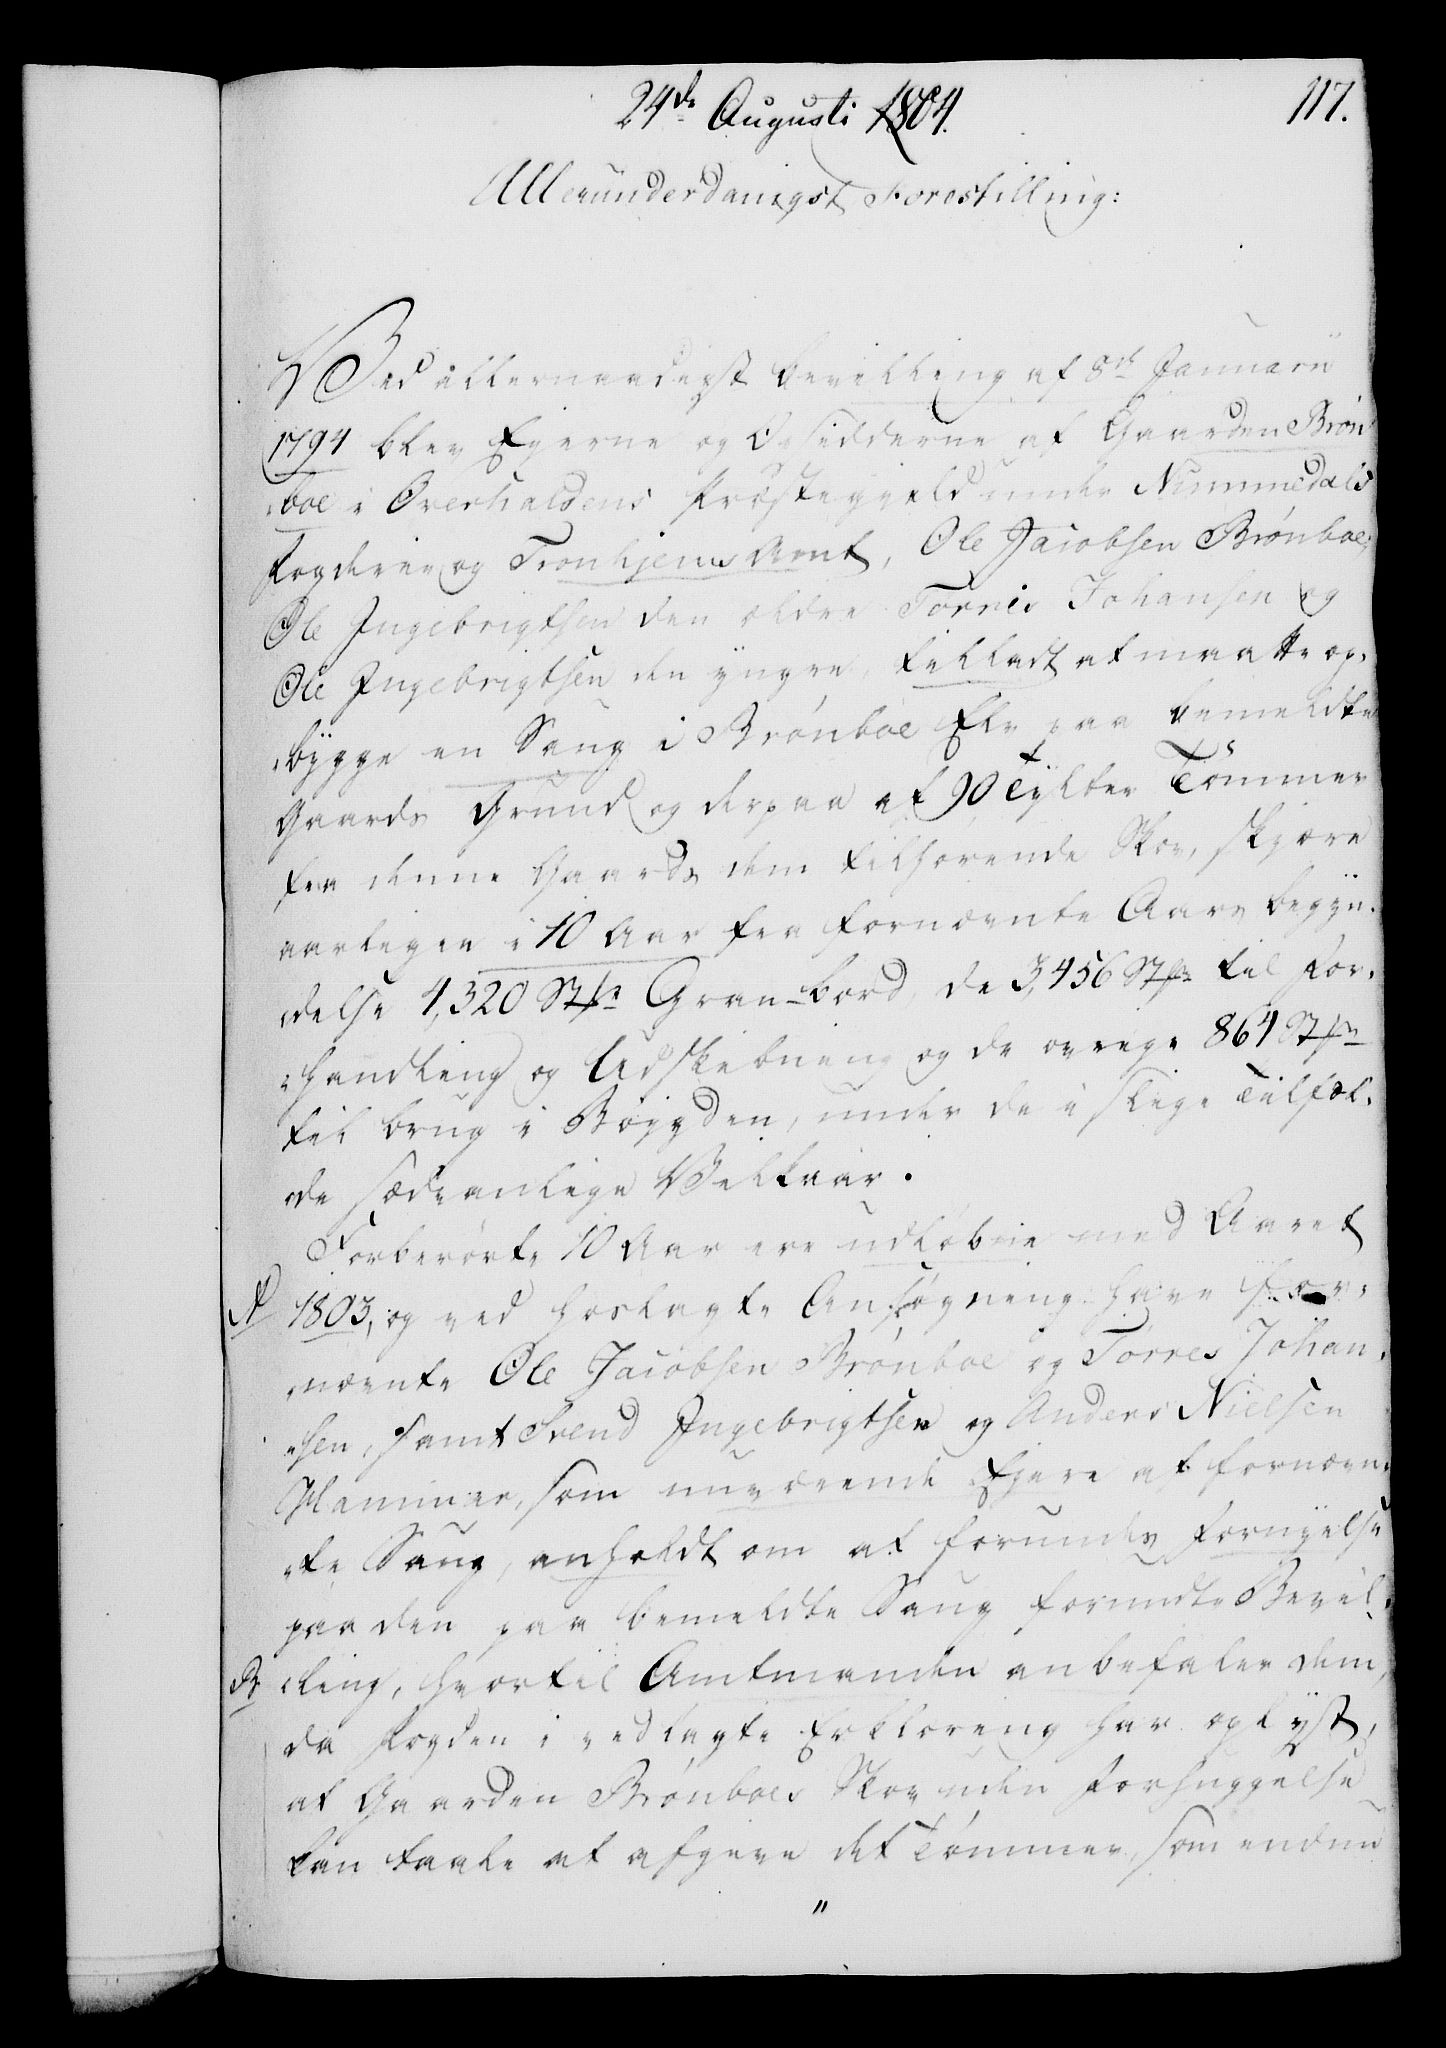 24de Augusti 1804.
117.
Allerunderdanigst Forestilling:
Ved allernaadigst Bevilling af 8de Januarii
1794 blev Eierne og Opsidderne af Gaarden Brøn
boe i Overhaldens Præstegield under Nummedals
Fogderie og Tronhjems Amt, Ole Jacobsen Brønboe,
Ole Ingebrigtsen den ældre Torris Johansen og
Ole Ingebrigtsen den yngre, tilladt at maatte op-
bygge en Saug i Brønboe Elv paa bemeldte
Gaards Grund og derpaa af 90 Tylter Tømmer
fra denne Gaards dem tilhørende Skov, skjære
aarligen i 10 Aar fra fornævnte Aars begyn-
delse 4,320 Stkr Gran-bord, de 3,456 Stkr til For-
handling og Udskibning og de øvrige 864 Stkr
til brug i Bøygden, under de i slige Tilfæl-
de sædvanlige Vilkaar.
Forberørte 10 Aar ere udløbne med Aaret
A
1803, og ved hoslagte Ansøgning have for-
nævnte Ole Jacobsen Brønboe og Torres Johan-
sen, samt Svend Ingebrigtsen og Anders Nielsen
Hammer, som nuværende Eiere af fornævn-
te Saug, anholdt om at forundes Fornyelse
paa den paa bemeldte Saug forundte Bevil-
B
ling, hvortil Amtmanden anbefaler dem,
da Fogden i vedlagte Erklæring har oplyst,
at Gaarden Brønboes Skov uden Forhuggelse
kan taale at afgive det Tømmer, som endnu
"